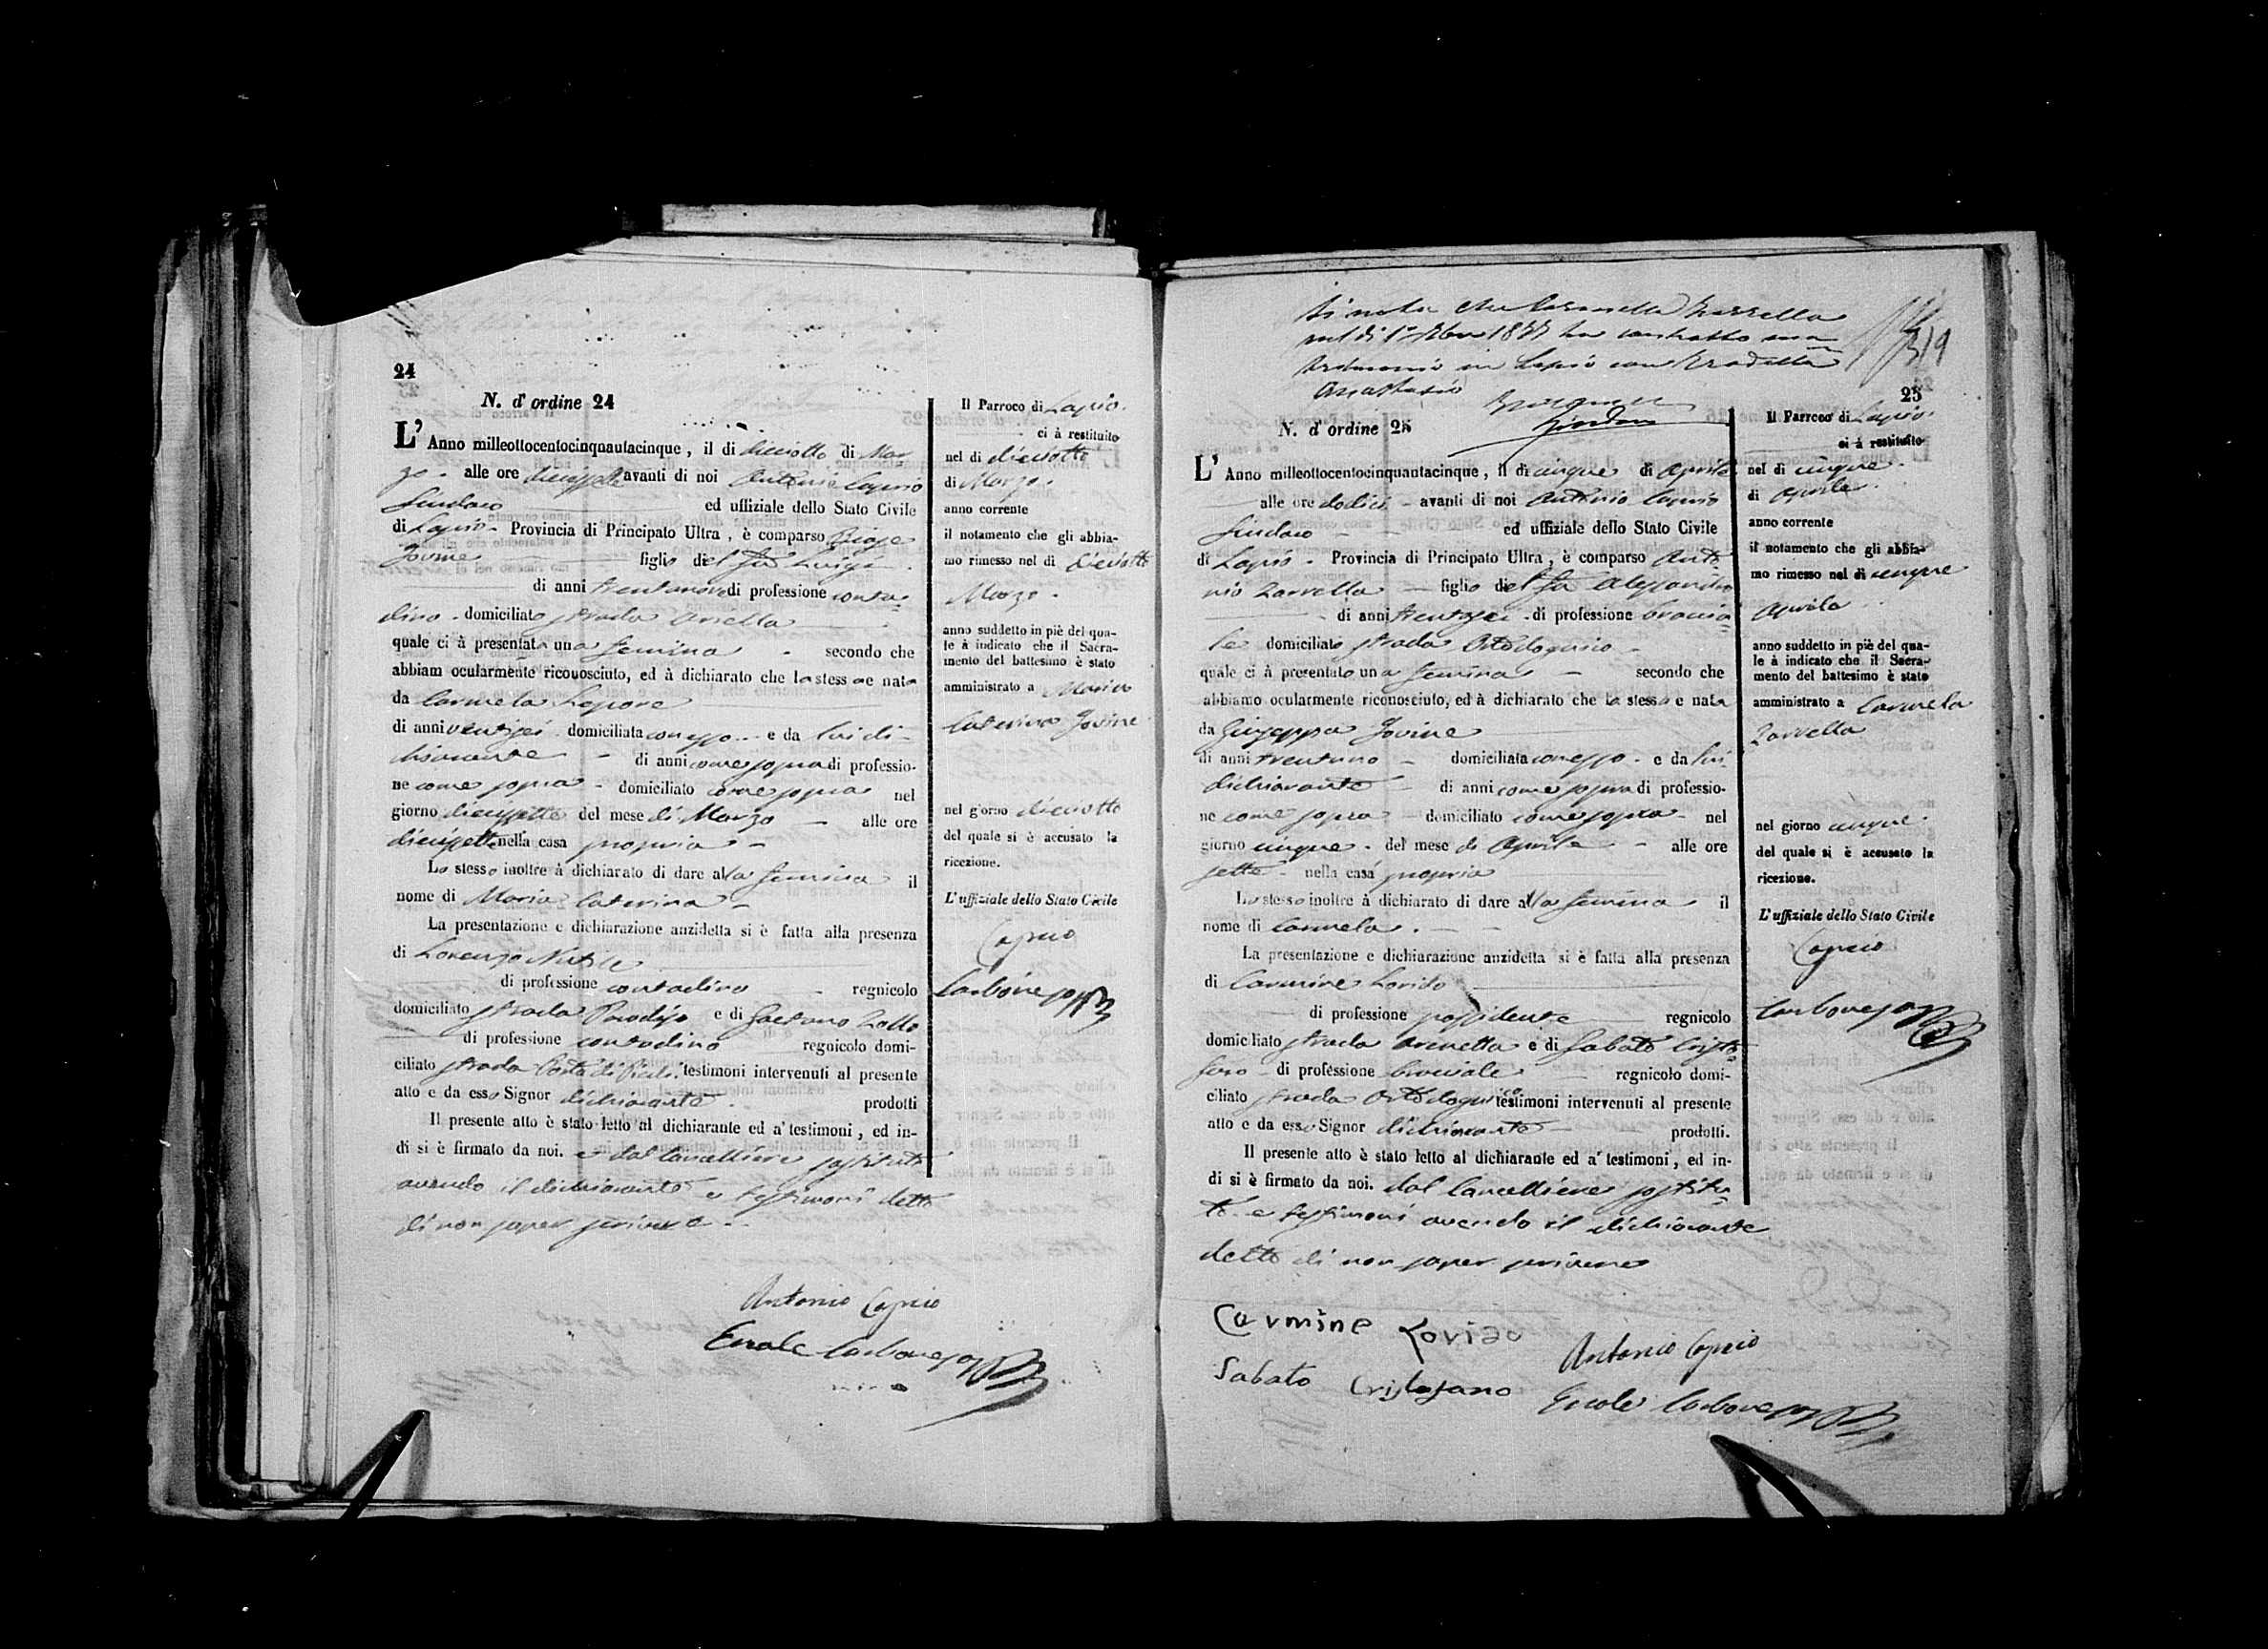 24
N. d' ordine 24
L' Anno milleottocentocinquantacinque, il di dieciotto di Mar
zo - alle ore diecisette avanti di noi Antonio Caprio
Sindaco ed uffiziale dello Stato Civile
di Lapio - Provincia di Principato Ultra, è comparso Biage
Jovine figlio del fu Luigi
di anni trentanove di professione conta-
dino - domiciliato strada Ariella
quale ci à presentata una femina - secondo che
abbiam ocularmente riconosciuto, ed à dichiarato che la stessa e nata
da Carmela Lepore
di anni ventisei domiciliata con esso - e da lui di-
chiarante - di anni come sopra di professio-
ne come sopra - domiciliato come sopra nel
giorno diecisette del mese di Marzo - alle ore
diecisette nella casa propria -
Lo stesso inoltre à dichiarato di dare alla femina il
nome di Maria Caterina -
La presentazione e dichiarazione anzidetta si è fatta alla presenza
di Lorenzo
di professione contadino - regnicolo
domiciliato strada Paradiso e di Gaetano Zollo
di professione contadino regnicolo domi-
ciliato strada Porta di testimoni intervenuti al presente
atto e da esso Signor dichiarante - prodotti
Il presente atto è stato letto al dichiarante ed a' testimoni, ed in-
di si è firmato da noi. e dal Cancelliere sostituto
avendo il dichiarante e testimoni detto
di non saper scrivere -
Antonio Caprio
Ercole Carbone
Il Parroco di Lapio.
ci à restituito
nel di dieciotto
di Marzo.
anno corrente
il notamento che gli abbia-
mo rimesso nel di dieciotto
Marzo -
anno suddetto in piè del qua-
le à indicato che il Sacra-
mento del battesimo è stato
amministrato a Maria
Caterina Jovine
nel giorno dieciotto
del quale si è accusato la
ricezione.
L'uffiziale dello Stato Civile
Caprio
Carbone
Si nota che Carmella Zarrella
nel di 1° 1877 ha contratto ma
trimonio in Lapio con
Anastasio
319
25
N. d' ordine 25
L' Anno milleottocentocinquantacinque, il di cinque di Aprile
alle ore dodici - avanti di noi Antonio Caprio
Sindaco - ed uffiziale dello Stato Civile
di Lapio - Provincia di Principato Ultra, è comparso Anto-
nio Zarrella - figlio del fu Alessandro
di anni trentasei - di professione braccia-
le domiciliato strada
quale ci à presentato una femina - secondo che
abbiamo ocularmente riconosciuto, ed à dichiarato che la stessa e nata
da Giuseppa Jovine
di anni trentuno - domiciliata con esso - e da lui
dichiarante - di anni come sopra di professio-
ne come sopra - domiciliato come sopra - nel
giorno cinque - del mese di Aprile - alle ore
sette - nella casa propria
Lo stesso inoltre à dichiarato di dare alla femina il
nome di Carmela. -
La presentazione e dichiarazione anzidetta si è fatta alla presenza
di Carmine Loriso
di professione possidente regnicolo
domiciliato strada e di Sabato Cristo-
faro - di professione bracciale regnicolo domi-
ciliato strada testimoni intervenuti al presente
atto e da esso Signor dichiarante - prodotti.
Il presente atto è stato letto al dichiarante ed a' testimoni, ed in-
di si è firmato da noi. dal Cancelliere sostitu-
to e testimoni avendo il dichiarante
detto di non saper scrivere
Carmine
Sabato
Antonio Caprio
Ercole Carbone
Il Parroco di Lapio.
ci à restituito
nel di cinque -
di Aprile
anno corrente
il notamento che gli abbia-
mo rimesso nel di cinque
Aprile
anno suddetto in piè del qua-
le à indicato che il Sacra-
mento del battesimo è stato
amministrato a Carmela
Zarrella
nel giorno cinque -
del quale si è accusato la
ricezione.
L'uffiziale dello Stato Civile
Caprio
Carbone